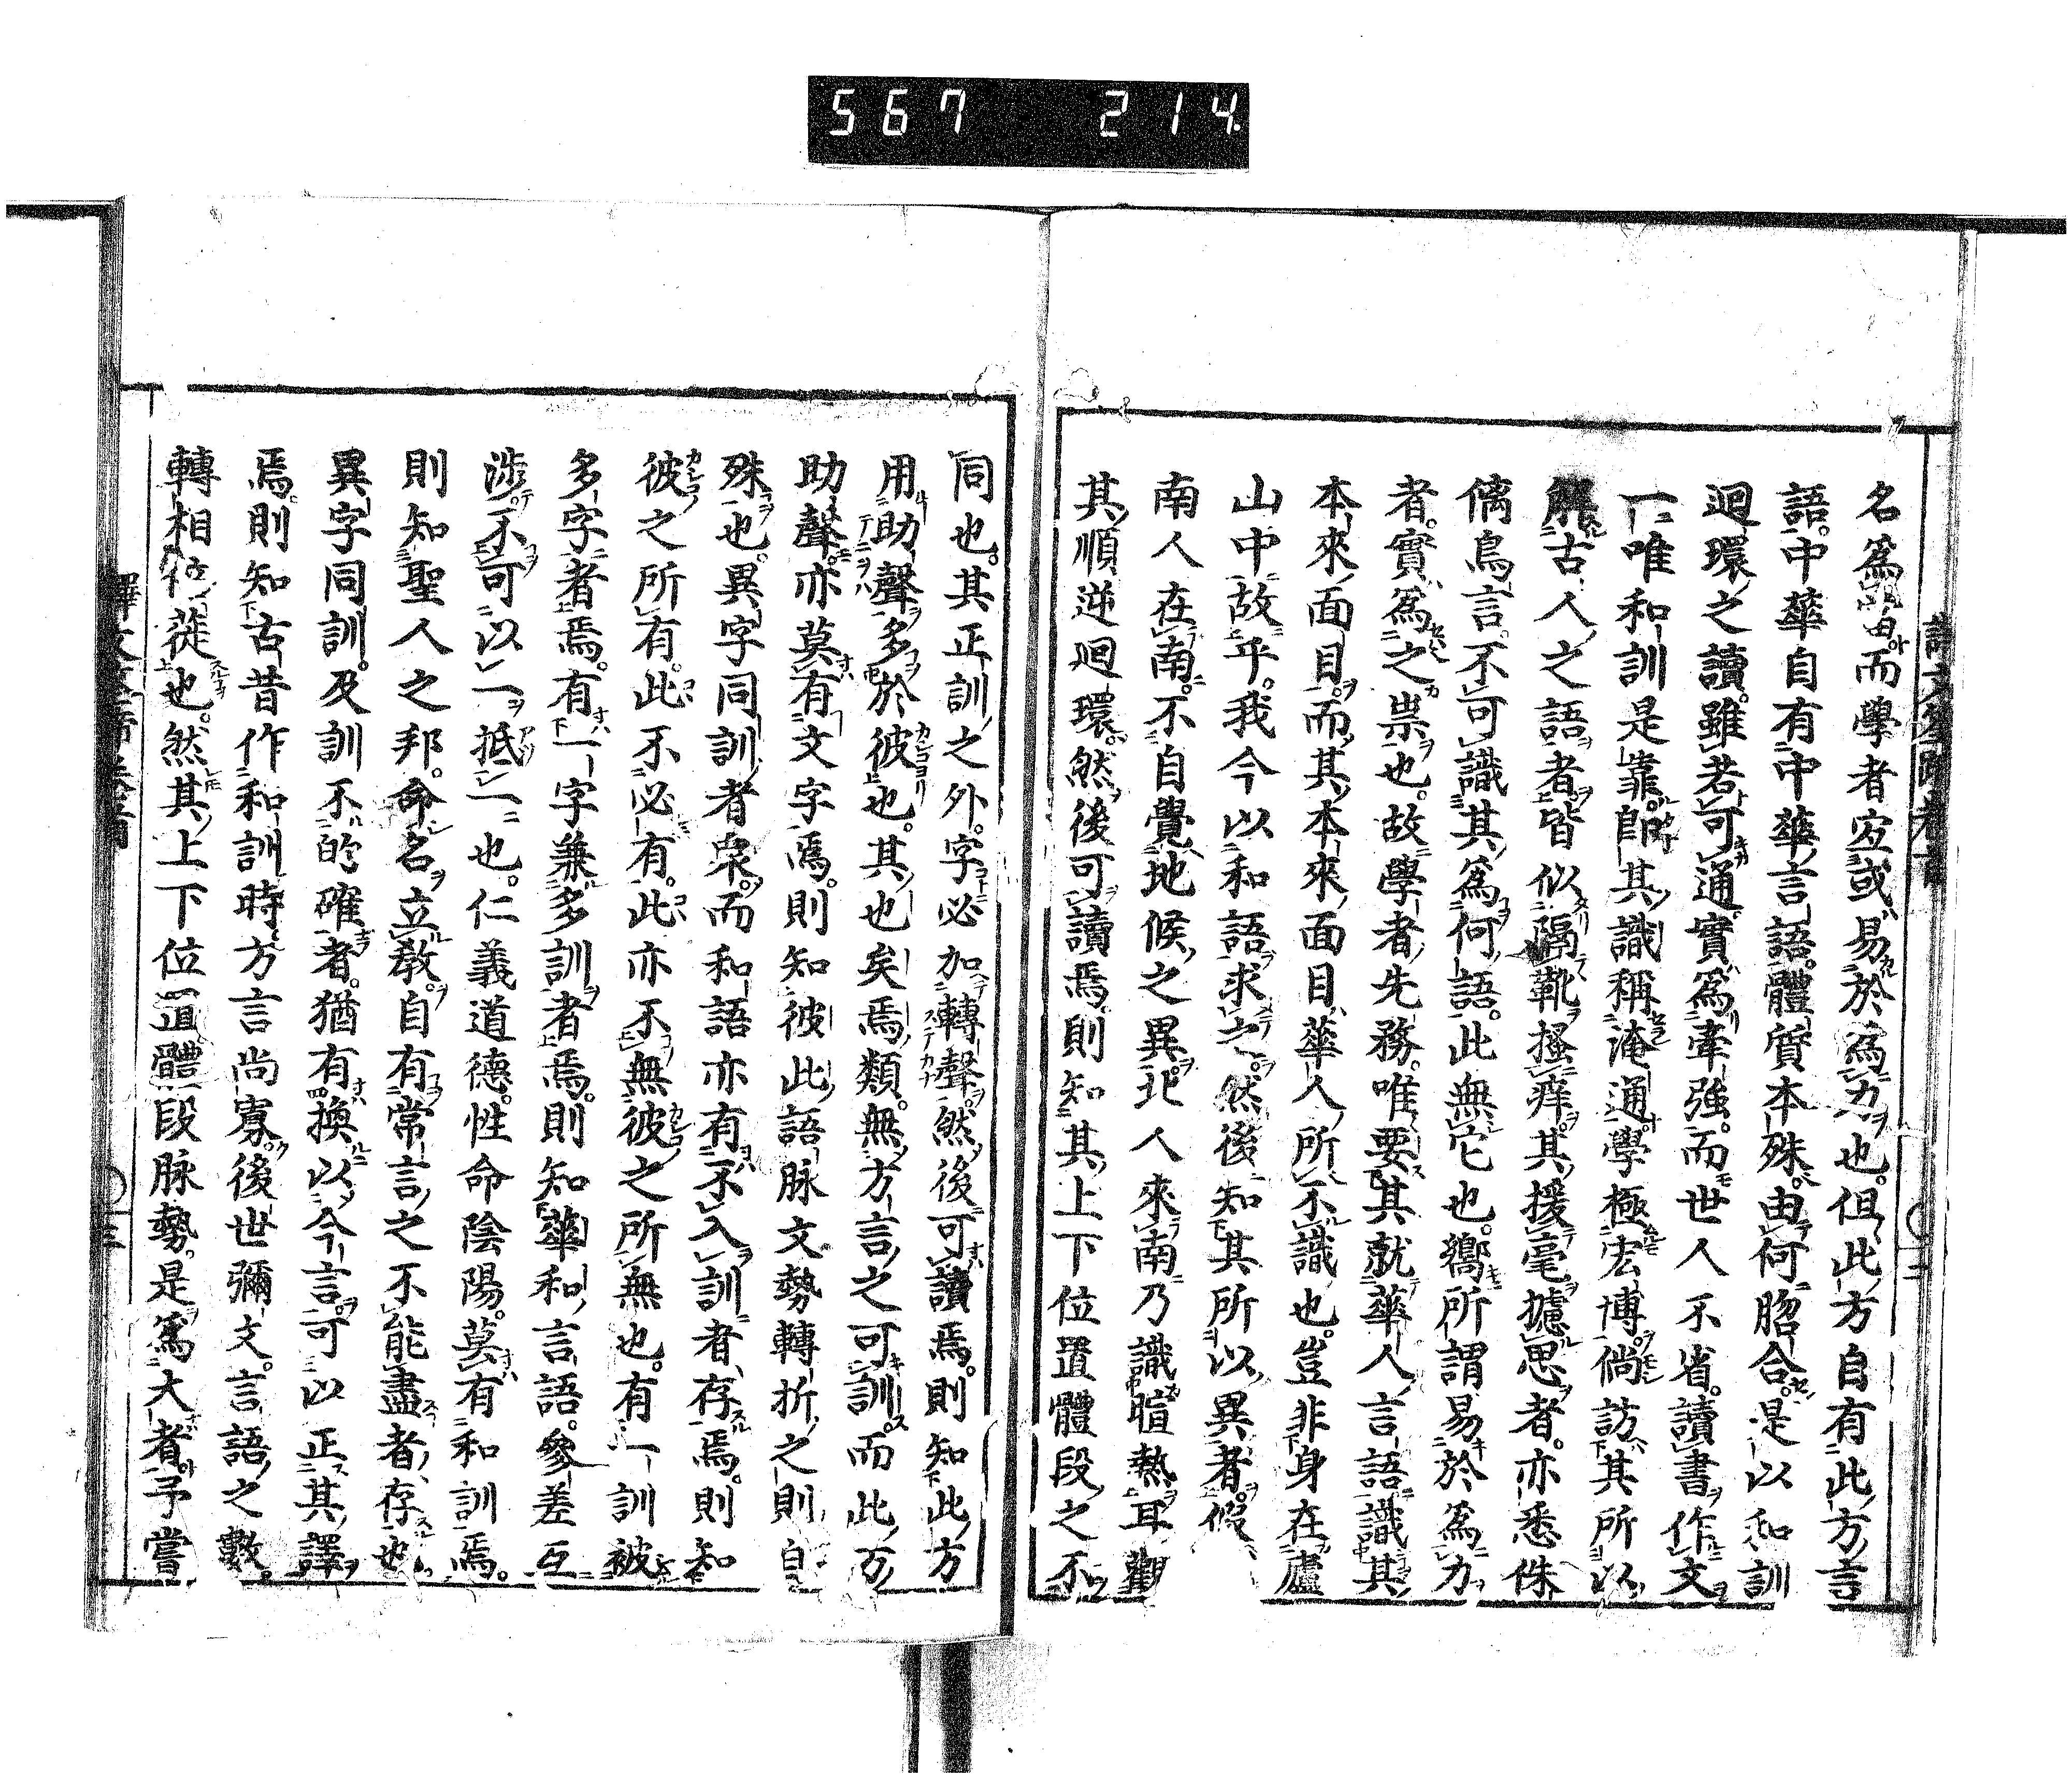 567 214
名爲筌而學者宜或易於爲力也。但此方自有此方言
語。中華自有中華言語。體質本殊。由何脗合。是以和訓
迴環之讀。雖若可通。實爲牽強。而世人不省。讀書作文
一唯和訓是靠。即其識稱淹通。學極宏博。倘訪其所以
解古人之語者。皆似隔靴搔痒。其援毫攄思者。亦悉侏
𠌯鳥言。不可識其爲何語。此無它也。嚮所謂易於爲力
者。實爲之祟也。故學者先務。唯要其就華人言語。識其
本來面目。而其本來面目。華人所不識也。豈非身在廬
山中故乎。我今以和語求之。然後知其所以異者。假
南人在南。不自覺地候之異。北人來南。乃識暄熱耳。觀
其順逆迴環。然後可讀焉。則知其上下位置體段之不
同也。其正訓之外。字必加轉聲。然後可讀焉。則知此方
用助聲。多於彼也。其也矣焉類。無方言之可訓。而此方
助聲。亦莫有文字焉。則知彼此語脉文勢轉折之則自
殊也。異字同訓者衆。而和語亦有不入訓者存焉。則知
彼之所有。此不必有。此亦不無彼之所無也。有一訓被
多字者焉。有一字兼多訓者焉。則知華和言語。參差互
涉。不可以一抵一也。仁義道德。性命陰陽。莫有和訓焉。
則知聖人之邦。命名立教。自有常言之不能盡者存也。
異字同訓。及訓不的確者。猶有換以今言。可以正其譯
焉。則知古昔作和訓時。方言尚寡。後世彌文。言語之數。
轉相倍蓰也。然其上下位置體段脉勢。是爲大者。予嘗